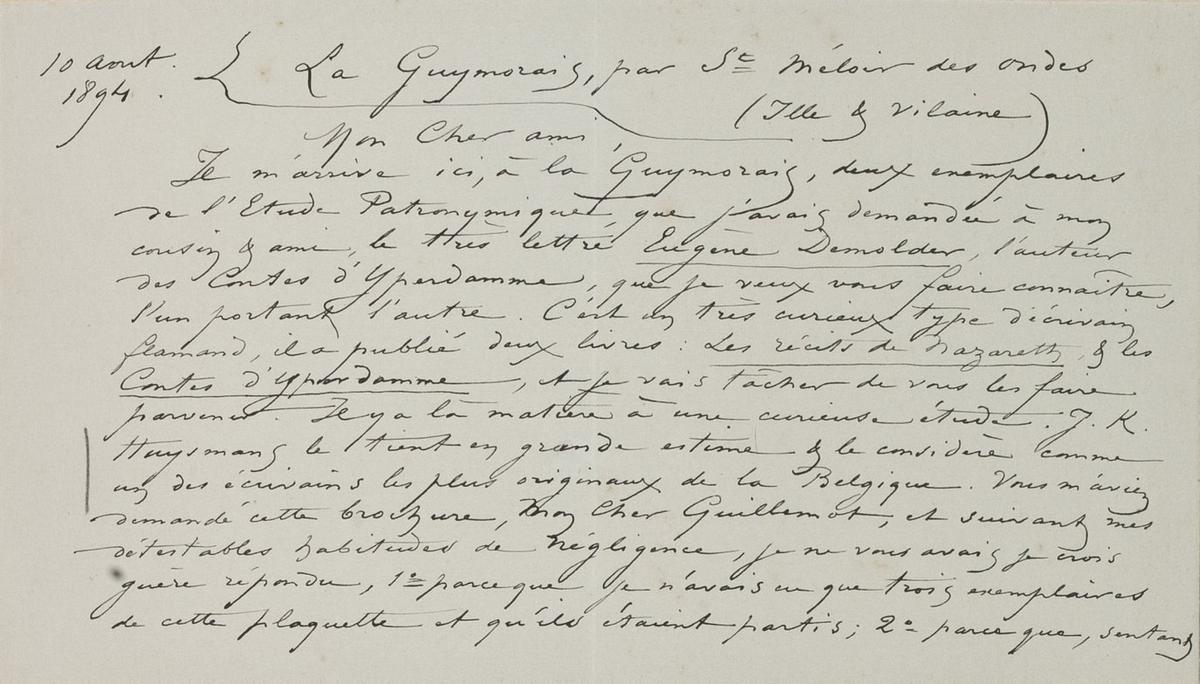 10 aout. La Guymorais, par St Méloir des ondes
1894. (Ille & vilaine)
Mon Cher ami,
Il m'arrive ici, à la Guymorais, deux exemplaires
de l'Etude Patronymique que j'avais demandée à mon
cousin & ami, le très lettré Eugène Demolder, l'auteur
des Contes d'Yperdamme, que je veux vous faire connaître,
l'un portant l'autre. C'est un très curieux type d'écrivain
flamand, il a publié deux livres : Les récits de Nazareth, & les
Contes d'Yperdamme, et je vais tâcher de vous les faire
parvenir. Il y a là matière à une curieuse étude. J. K.
Huysmans le tient en grande estime & le considère comme
un des écrivains les plus originaux de la Belgique. Vous m'aviez
demandé cette brochure, Mon Cher Guillemot, et suivant mes
détestables habitudes de négligence, je ne vous avais je crois
guère répondu, 1º parce que je n'avais eu que trois exemplaires
de cette plaquette et qu'ils étaient partis; 2º parce que, sentant